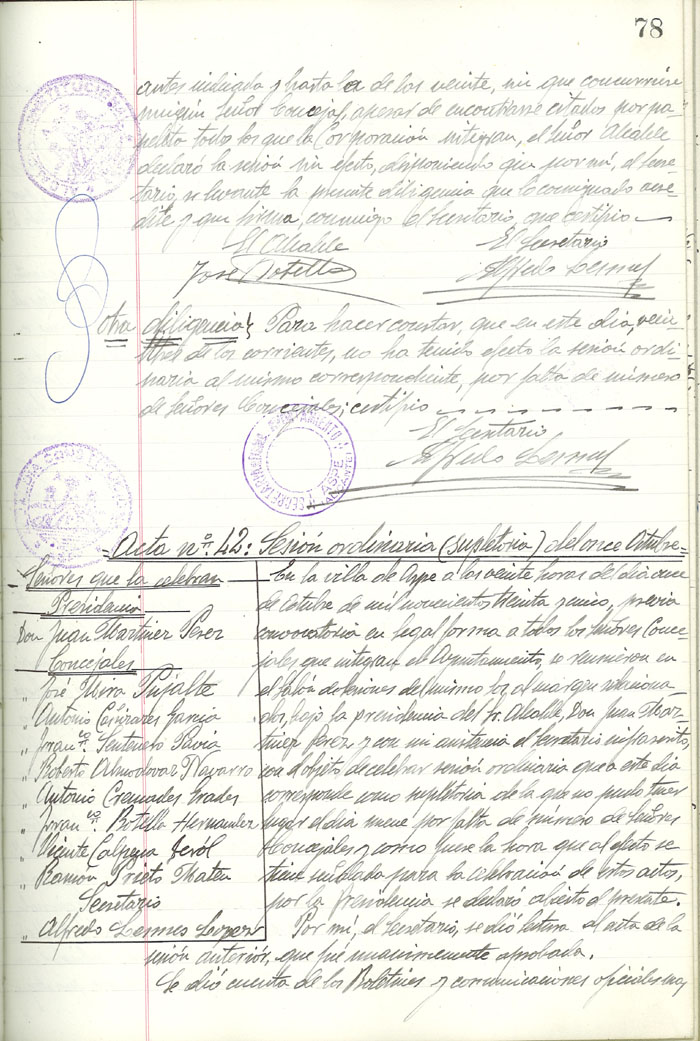 78
antes indicada y hasta la de las veinte, sin que concurriese
ningún Señor Concejal, apesar de encontrarse citados por pa-
peleta todos los que la Corporación integran, el señor Alcalde
declaró la sesión sin efecto, disponiendo que por mí, el Secre-
tario, se levante la presente diligencia que lo consignado acre-
dite y que firma, conmigo el Secretario, que certifico
El Alcalde El Secretario
José Botella Alfredo Lermes
Otra diligencia} Para hacer constar, que en este día, vein-
titres de los corrientes, no ha tenido efecto la sesión ordi-
naria al mismo correspondiente, por falta de número
de Señores Concejales; certifico
El Secretario
Alfredo Lermes
Acta nº 42: Sesión ordinaria (supletoria) del once Octubre
Señores que la celebran
Presidencia
Don Juan Martinez Perez
Concejales
" José Mira Pujalte
" Antonio Cañizares Garcia
" Franco. Sentenero Pavia
" Roberto Almodovar Navarro
" Antonio Cremades Prades
" Franco. Botella Hernandez
" Vicente Calpena Cerol
" Ramón Prieto Mateu
Secretario
" Alfredo Lermes Lopez
En la villa de Aspe a las veinte horas del día once
de Octubre de mil novecientos treinta y cinco, previa
convocatoria en legal forma a todos los Señores Conce-
jales que integran el Ayuntamiento, se reunieron en
el salón de sesiones del mismo los al margen relaciona-
dos, bajo la presidencia del Sr. Alcalde, Don Juan Mar-
tinez Perez, y con mi asistencia el Secretario infrascrito,
con objeto de celebrar sesión ordinaria que a este día
corresponde como supletoria de la que no pudo tener
lugar el día nueve por falta de número de Señores
Concejales y como fuese la hora que al efecto se
tiene señalada para la celebración de estos actos,
por la Presidencia se declaró abierto el presente.
Por mí, el Secretario, se dió lectura al acta de la
sesión anterior, que fué unanimemente aprobada.
Se dió cuenta de los Boletines y comunicaciones oficiales mas